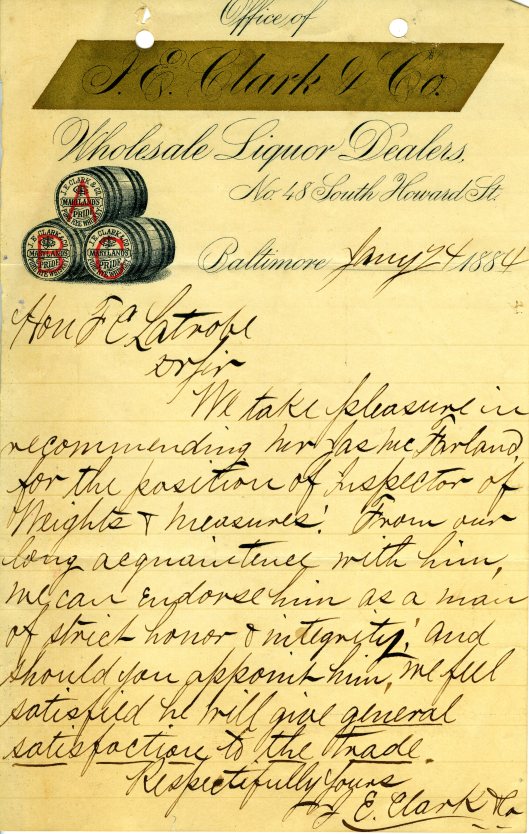 Office of
J. E. Clark & Co.
Wholesale Liquor Dealers.
No. 48 South Howard St.
A
J. E. CLARK & CO.
MARYLANDS
PRIDE
PURE RYE WHISKEY
B
J. E. CLARK & CO.
MARYLANDS
PRIDE
PURE RYE WHISKEY
C
J. E. CLARK & CO.
MARYLANDS
PRIDE
PURE RYE WHISKEY
Baltimore Jany 24 1884
Hon F C Latrobe
Dr Sir
We take pleasure in
recommending Mr Jas McFarland,
for the position of Inspector of
Weights & Measures. From our
long acquaintence with him,
we can endorse him as a man
of strict honor & integrity, and
should you appoint him, we feel
satisfied he will give general
satisfaction to the trade.
Respectifully Yours
J. E. Clark & Co